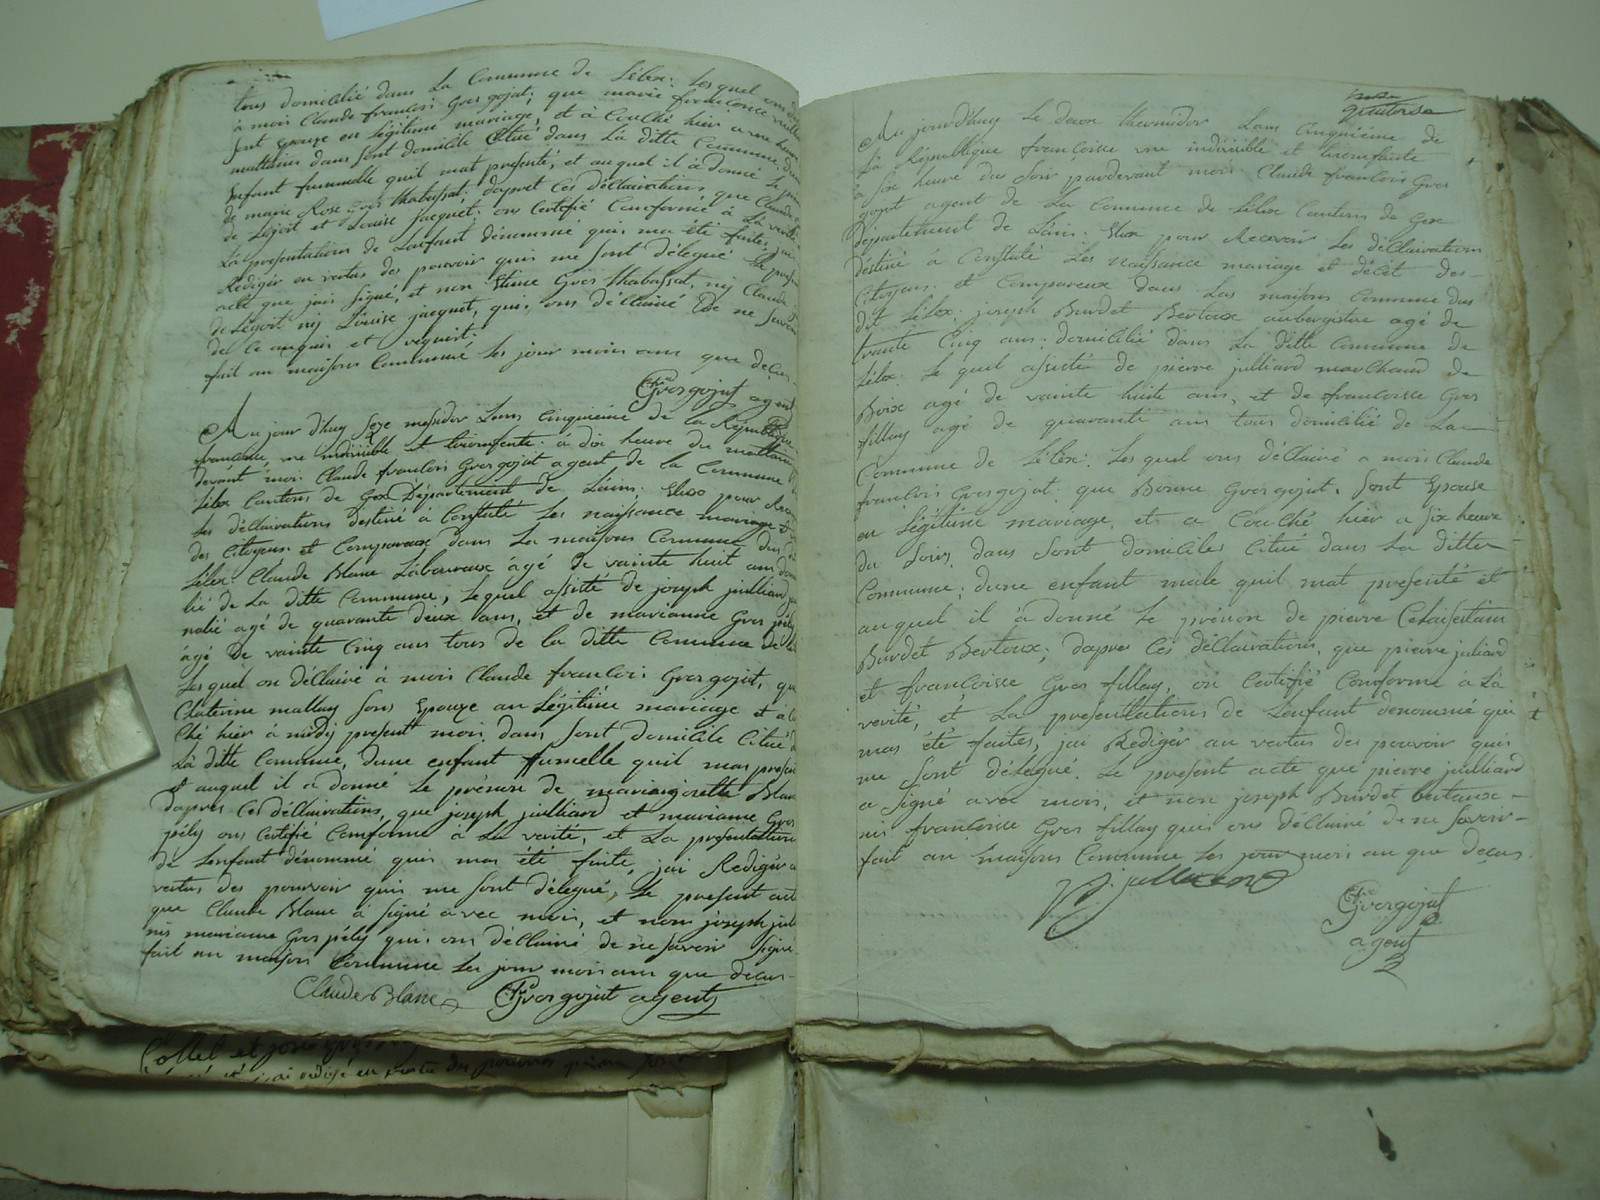 tous domicilié dans La Commune de Lélex. Les quel ons
à mois Claude francois Gros gojat, que marie francoise
sont Epouze en légitime mariage, et à Couché hier a une heure
mattains dans sont domicile Citué dans La ditte Commune, dune
Enfant fummelle quil mat presenté, et auquel il à donné Le
de marie Rose Gros thabussat, dapret Ces déClairations, que Claude
de Légoit et Louise jacquet, ons Certifié Conforme à La verité
La presentations de Lenfant dénommé quis ma été faite, jai
Redigér en vertus des pouvoir quis me sont délegué Le present
acte que jais signé, et non Gros thabussat, nis Claude
de Légoit nis Louise jacquet, quis ons déClairé de ne savoir
de Ce anquis et requirt.
fait an maisons Commune Les jour mois ans que deçus -
Gros gojat agent
Au jour dhuy seze messidor Lans Cinquième de la République
francaise une indivisible et trionfente. à dix heure du mattains
devant mois Claude francois Gros gojat agent de La Commune
Lélex Cantons de Gex Département de Lains. Elux pour Rece
Les déClairations destiné à Constaté Les naissance mariage
des Citoyens. et Comparaux dans La maisons Commune dus
Lélex. Claude Blanc Laboureaux agé de vainte huit ans domi
lié de La ditte Commune, Lequel assisté de joseph juilliard
agé de quarante deux ans, et de marianne Gros pély
agé de vainte Cinq ans tous de la ditte Commune de
Les quel on déClairé à mois Claude francois Gros gojat, que
Chaterine mallay sons Epouze an Légitime mariage et à Cou
Ché hier à midy present mois dans sont domicile Citué
La ditte Commune, dune enfant fumelle quil mas presen
et auquel il à donné Le prénon de mariangorette Blanc
dapres Ces déClairations, que joseph juilliard et marianne Gros
pély ons Certifié Conforme à La verité, et La presentations
de Lenfant dénommé quis mas été faite, jai Redigér a
vertus des pouvoir quis me sont délegué, Le present acte
que Claude Blanc à signé avec mois, et non joseph juil
nis marianne Gros pély quis ons déClairé de ne savoir signé
fait an maisons Commune Les jour mois ans que deçus -
Claude Blanc Gros gojat agent
Au jourdhuy Le deux thermidor Lans Cinquième de
La République françoise une indivisible et trionfante
à six heure du soir pardevant mois Claude francois Gros
gojat agent de La Commune de Lélex Cantons de Gex
département de Lains. Elux pour Recevoir Les déClairations
déstiné à Constaté Les naissance mariage et décét des -
Citoyens. et Comparaux dans Las maisons Commune dus
dit Lélex. joseph Burdet Bertoux aubergistre agé de
trante Cinq ans. domicilié dans La ditte Commune de
Lélex. Le quel assisté de pierre juilliard marChand de
Boix agé de vainte huite ans, et de francoise Gros
fillay agé de quarante ans tous domicilié de La -
Commune de Lélex. Les quel ons déClairé a mois Claude
francois Gros gojat, que Bonne Gros gojat. sont Epouse
en Légitime mariage, et a Couché hier a six heure
du soirs dans sont domiciles Citué dans La ditte
Commune, dune enfant male quil mat presenté et
auquel il à donné Le prénon de pierre
Burdet Bertoux; dapres Ces déClairations, que pierre juliard
et francoisse Gros fillay, on Certifié Conforme à La
verité, et La presentations de Lenfant denommé qui
mas été faites, jai Redigér au vertus des pouvoir quis
me sont délegué. Le present acte que pierre juilliard
a signé avec mois, et non joseph Burdet bertoux -
nis francoisse Gros fillay quis ons déClairé de ne savoir -
fait an maisons Commune Les jour mois an que deçus.
p. julliard
Gros gojat
agent